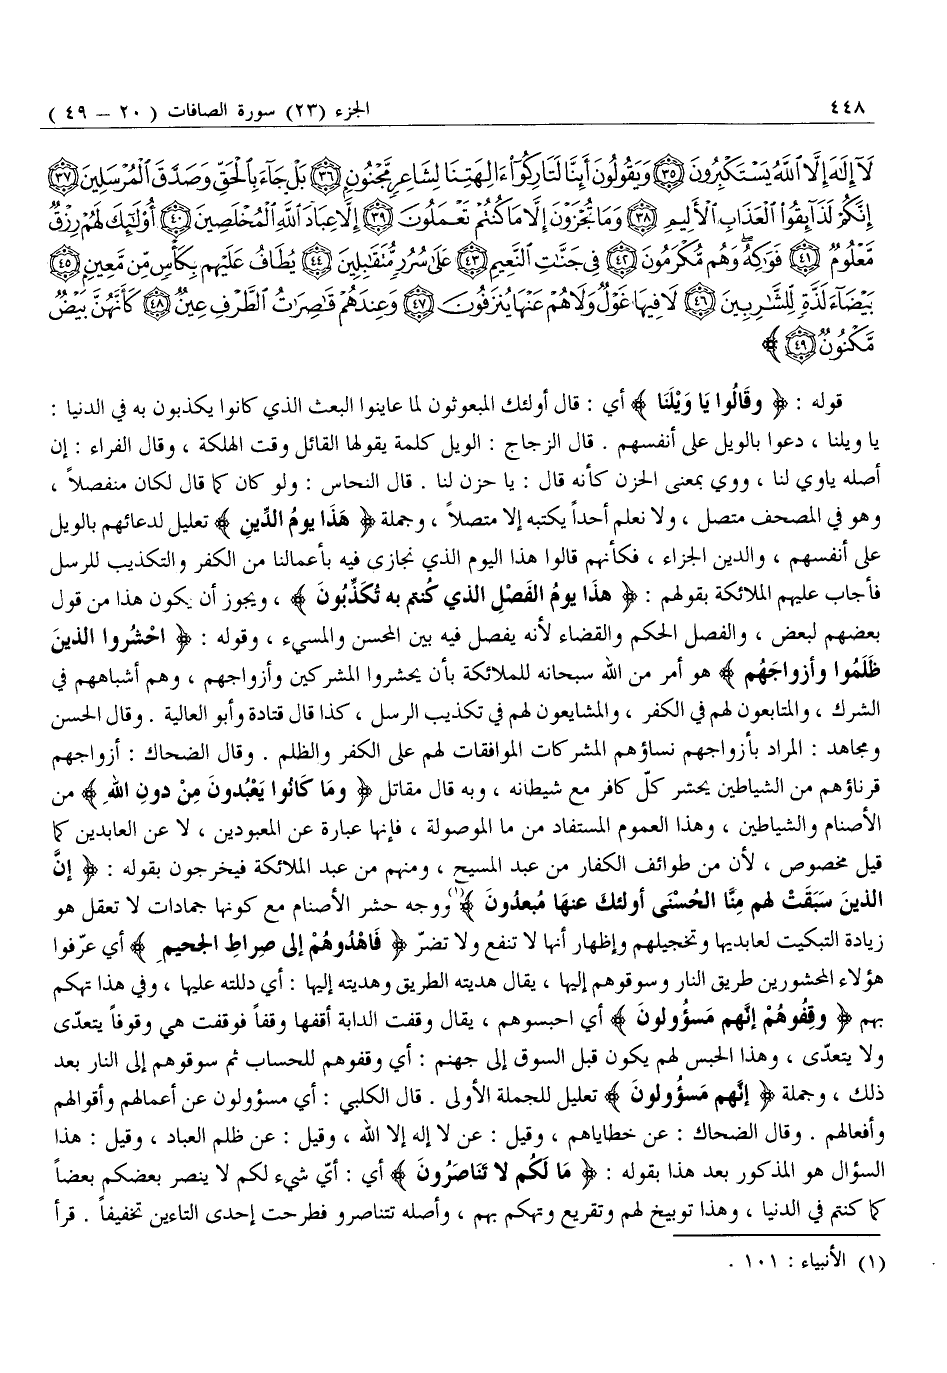 ٤٤٨ الجزء (٢٣) سورة الصافات ( ٢٠ – ٤٩ )
لَآ إِلَٰهَ إِلَّا ٱللَّهُ يَسْتَكْبِرُونَ ﴿٣٥﴾ وَيَقُولُونَ أَئِنَّا لَتَارِكُوٓا۟ ءَالِهَتِنَا لِشَاعِرٍ مَّجْنُونٍ ﴿٣٦﴾ بَلْ جَآءَ بِٱلْحَقِّ وَصَدَّقَ ٱلْمُرْسَلِينَ ﴿٣٧﴾
إِنَّكُمْ لَذَآئِقُوا۟ ٱلْعَذَابِ ٱلْأَلِيمِ ﴿٣٨﴾ وَمَا تُجْزَوْنَ إِلَّا مَا كُنتُمْ تَعْمَلُونَ ﴿٣٩﴾ إِلَّا عِبَادَ ٱللَّهِ ٱلْمُخْلَصِينَ ﴿٤٠﴾ أُو۟لَٰٓئِكَ لَهُمْ رِزْقٌ
مَّعْلُومٌ ﴿٤١﴾ فَوَٰكِهُ وَهُم مُّكْرَمُونَ ﴿٤٢﴾ فِى جَنَّٰتِ ٱلنَّعِيمِ ﴿٤٣﴾ عَلَىٰ سُرُرٍ مُّتَقَٰبِلِينَ ﴿٤٤﴾ يُطَافُ عَلَيْهِم بِكَأْسٍ مِّن مَّعِينٍۭ ﴿٤٥﴾
بَيْضَآءَ لَذَّةٍ لِّلشَّٰرِبِينَ ﴿٤٦﴾ لَا فِيهَا غَوْلٌ وَلَا هُمْ عَنْهَا يُنزَفُونَ ﴿٤٧﴾ وَعِندَهُمْ قَٰصِرَٰتُ ٱلطَّرْفِ عِينٌ ﴿٤٨﴾ كَأَنَّهُنَّ بَيْضٌ
مَّكْنُونٌ ﴿٤٩﴾ ﴾
قوله : ﴿ وقَالُوا يَا وَيْلَنَا ﴾ أي : قال أولئك المبعوثون لما عاينوا البعث الذي كانوا يكذبون به في الدنيا :
يا ويلنا ، دعوا بالويل على أنفسهم . قال الزجاج : الويل كلمة يقولها القائل وقت الهلكة ، وقال الفراء : إن
أصله ياوي لنا ، ووي بمعنى الحزن كأنه قال : يا حزن لنا . قال النحاس : ولو كان كما قال لكان منفصلاً ،
وهو في المصحف متصل ، ولا نعلم أحداً يكتبه إلا متصلاً ، وجملة ﴿ هَذَا يومُ الدِّينِ ﴾ تعليل لدعائهم بالويل
على أنفسهم ، والدين الجزاء ، فكأنهم قالوا هذا اليوم الذي نجازى فيه بأعمالنا من الكفر والتكذيب للرسل
فأجاب عليهم الملائكة بقولهم : ﴿ هذا يومُ الفَصْلِ الذي كُنتم به تُكَذِّبُونَ ﴾ ، ويجوز أن يكون هذا من قول
بعضهم لبعض ، والفصل الحكم والقضاء لأنه يفصل فيه بين المحسن والمسيء ، وقوله : ﴿ احْشُروا الذينَ
ظَلَمُوا وأزواجَهُم ﴾ هو أمر من الله سبحانه للملائكة بأن يحشروا المشركين وأزواجهم ، وهم أشباههم في
الشرك ، والمتابعون لهم في الكفر ، والمشايعون لهم في تكذيب الرسل ، كذا قال قتادة وأبو العالية . وقال الحسن
ومجاهد : المراد بأزواجهم نساؤهم المشركات الموافقات لهم على الكفر والظلم . وقال الضحاك : أزواجهم
قرناؤهم من الشياطين يحشر كلّ كافر مع شيطانه ، وبه قال مقاتل ﴿ وَمَا كَانُوا يَعْبُدونَ مِنْ دونِ اللهِ ﴾ من
الأصنام والشياطين ، وهذا العموم المستفاد من ما الموصولة ، فإنها عبارة عن المعبودين ، لا عن العابدين كما
قيل مخصوص ، لأن من طوائف الكفار من عبد المسيح ، ومنهم من عبد الملائكة فيخرجون بقوله : ﴿ إنَّ
الذينَ سَبَقَتْ لهم مِنَّا الحُسْنَى أولئك عنها مُبعدُونَ ﴾(١) ووجه حشر الأصنام مع كونها جمادات لا تعقل هو
زيادة التبكيت لعابديها وتخجيلهم وإظهار أنها لا تنفع ولا تضرّ ﴿ فَاهْدُوهُمْ إلى صِراطِ الجحيمِ ﴾ أي عرّفوا
هؤلاء المحشورين طريق النار وسوقوهم إليها ، يقال هديته الطريق وهديته إليها : أي دللته عليها ، وفي هذا تهكم
بهم ﴿ وقِفُوهُمْ إنَّهم مَسؤُولونَ ﴾ أي احبسوهم ، يقال وقفت الدابة أقفها وقفاً فوقفت هي وقوفاً يتعدّى
ولا يتعدّى ، وهذا الحبس لهم يكون قبل السوق إلى جهنم : أي وقفوهم للحساب ثم سوقوهم إلى النار بعد
ذلك ، وجملة ﴿ إنَّهم مَسؤُولونَ ﴾ تعليل للجملة الأولى . قال الكلبي : أي مسؤولون عن أعمالهم وأقوالهم
وأفعالهم . وقال الضحاك : عن خطاياهم ، وقيل : عن لا إله إلا الله ، وقيل : عن ظلم العباد ، وقيل : هذا
السؤال هو المذكور بعد هذا بقوله : ﴿ مَا لَكُم لا تَناصَرُونَ ﴾ أي : أيّ شيء لكم لا ينصر بعضكم بعضاً
كما كنتم في الدنيا ، وهذا توبيخ لهم وتقريع وتهكم بهم ، وأصله تتناصرو فطرحت إحدى التاءين تخفيفاً . قرأ
(١) الأنبياء : ١٠١ .